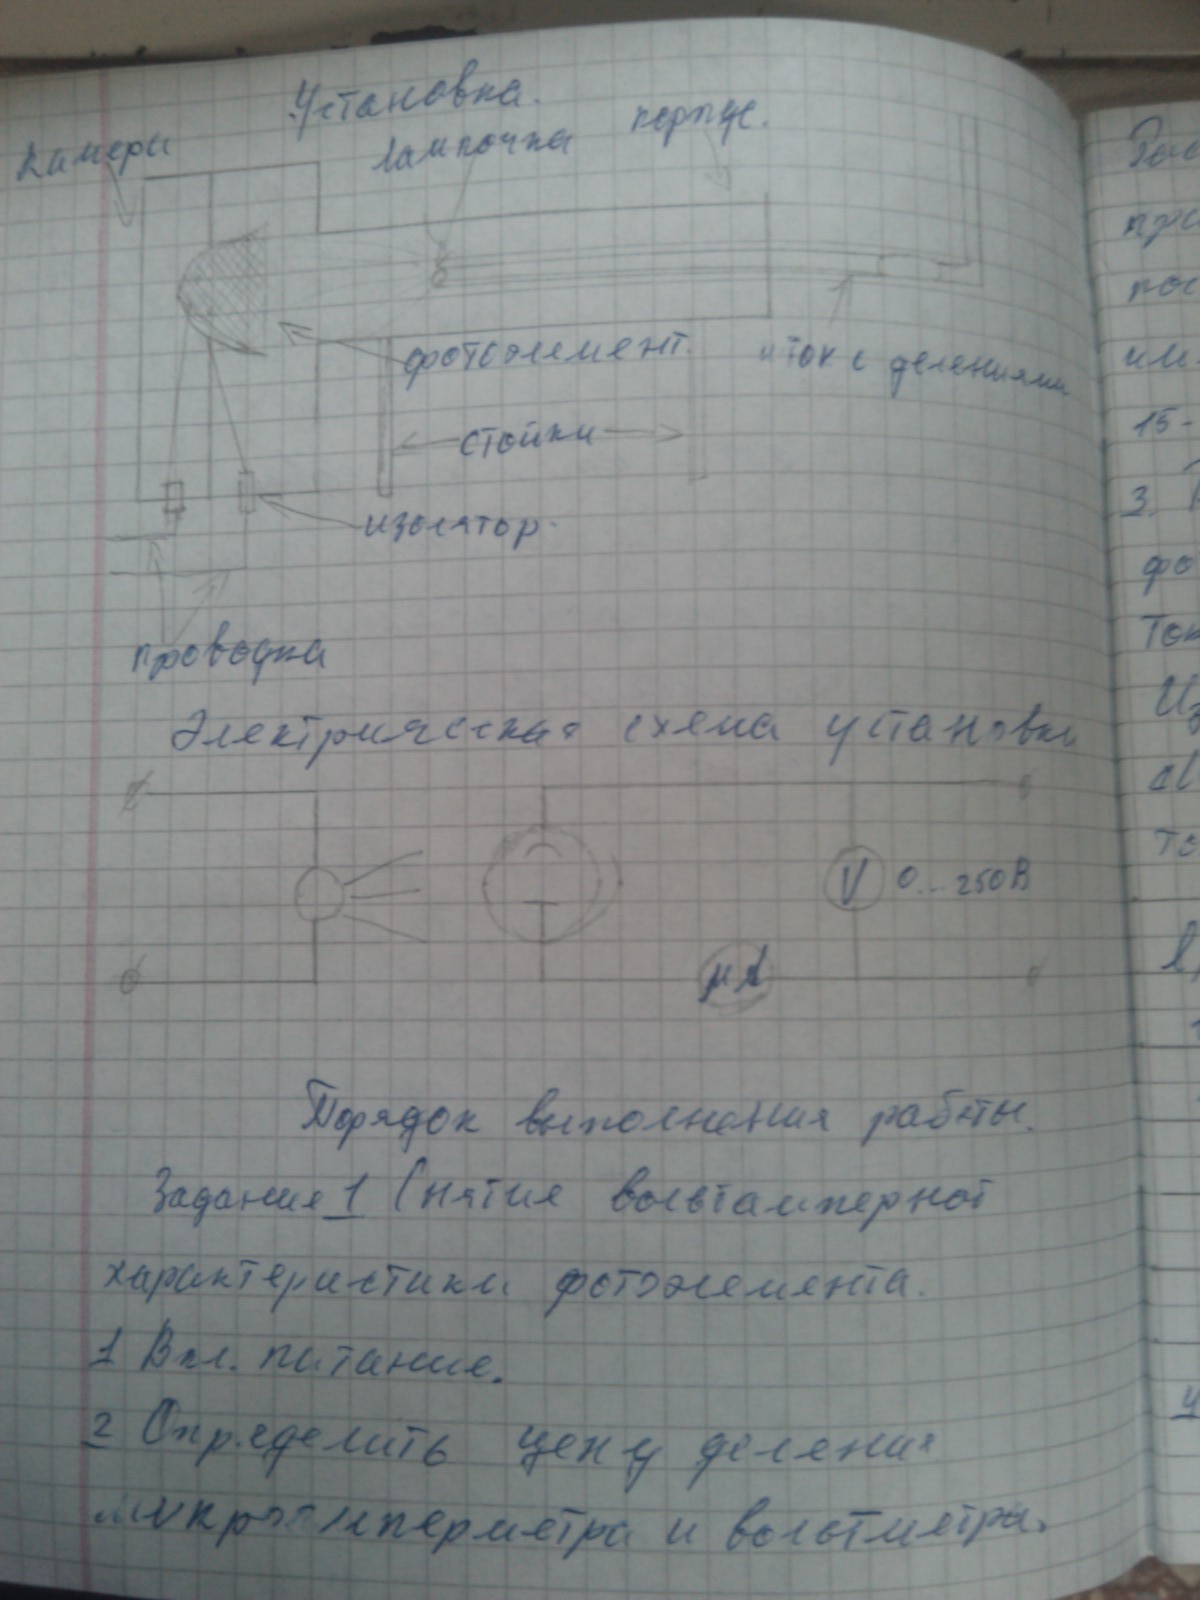 Установка.
Камера
Лампочка
корпус.
фотоэлемент.
шток с делениями
стойки
изолятор.
проводка
Электрическая схема установки
V 0...250В
μA
Порядок выполнения работы.
Задание 1 Снятие вольтамперной
характеристики фотоэлемента.
1 Вкл. питание.
2 Определить цену деления
микроамперметра и вольтметра.
15-
3.